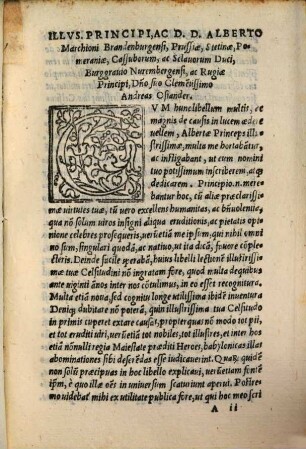 ILLVS. PRINCIPI, AC D. D. ALBERTO
Marchioni Brandenburgensi, Prussiæ, Stetinæ, Po-
meraniæ, Cassuborum, ac Sclauorum Duci,
Burggrauio Nurembergensi, ac Rugiæ
Principi, Dño suo Clemẽtissimo
Andreas Osiander.
CVM hunc libellum multis, et
magnis de causis in lucem ædere
vellem, Alberte Princeps illu-
strissime, multa me hortabãtur,
ac instigabant, ut eum nomini
tuo potissimum inscriberem, atq;
dedicarem. Principio.n. mere-
bantur hoc, tũ aliæ præclarissi-
mæ virtutes tuæ, tũ uero excellens humanitas, ac bñuolentia,
qua nõ solum uiros insigni aliqua eruditionis, ac pietatis opi-
nione celebres prosequeris, uerũetiã me ipsum, qui nihil omni-
no sum, singulari quodã, ac nutu, ut ita dicã, fauore cõple-
cteris. Deinde facile sperabã, huius libelli lectionẽ illustrissi-
mæ tuæ Celsitudini nõ ingratam fore, quod multa de quibus
ante uiginti ãnos inter nos cõtulimus, in eo esset recognitura.
Multa etiã noua, sed cognitu longe utilissima ibidẽ inuentura
Deniq; dubitare nõ poterã, quin illustrissima tua Celsitudo
in primis cuperet extare causas, propter quas nõ modo tot pij,
et tot eruditi uiri, uerũetiã tot nobiles, tot illustres, et inter hos
etiã nõnulli regia Maiestate præditi Heroes, babylonicas illas
abominationes sibi deserẽdas esse iudicauerint. Quas quidẽ
non solũ præcipuas in hoc libello explicaui, uerũetiam fontẽ
ipm̃, è quo illæ oẽs in uniuersum scaturiunt aperui. Postre-
mo uidebat mihi ex utilitate publica fore, ut qui hoc meo scri
A ii